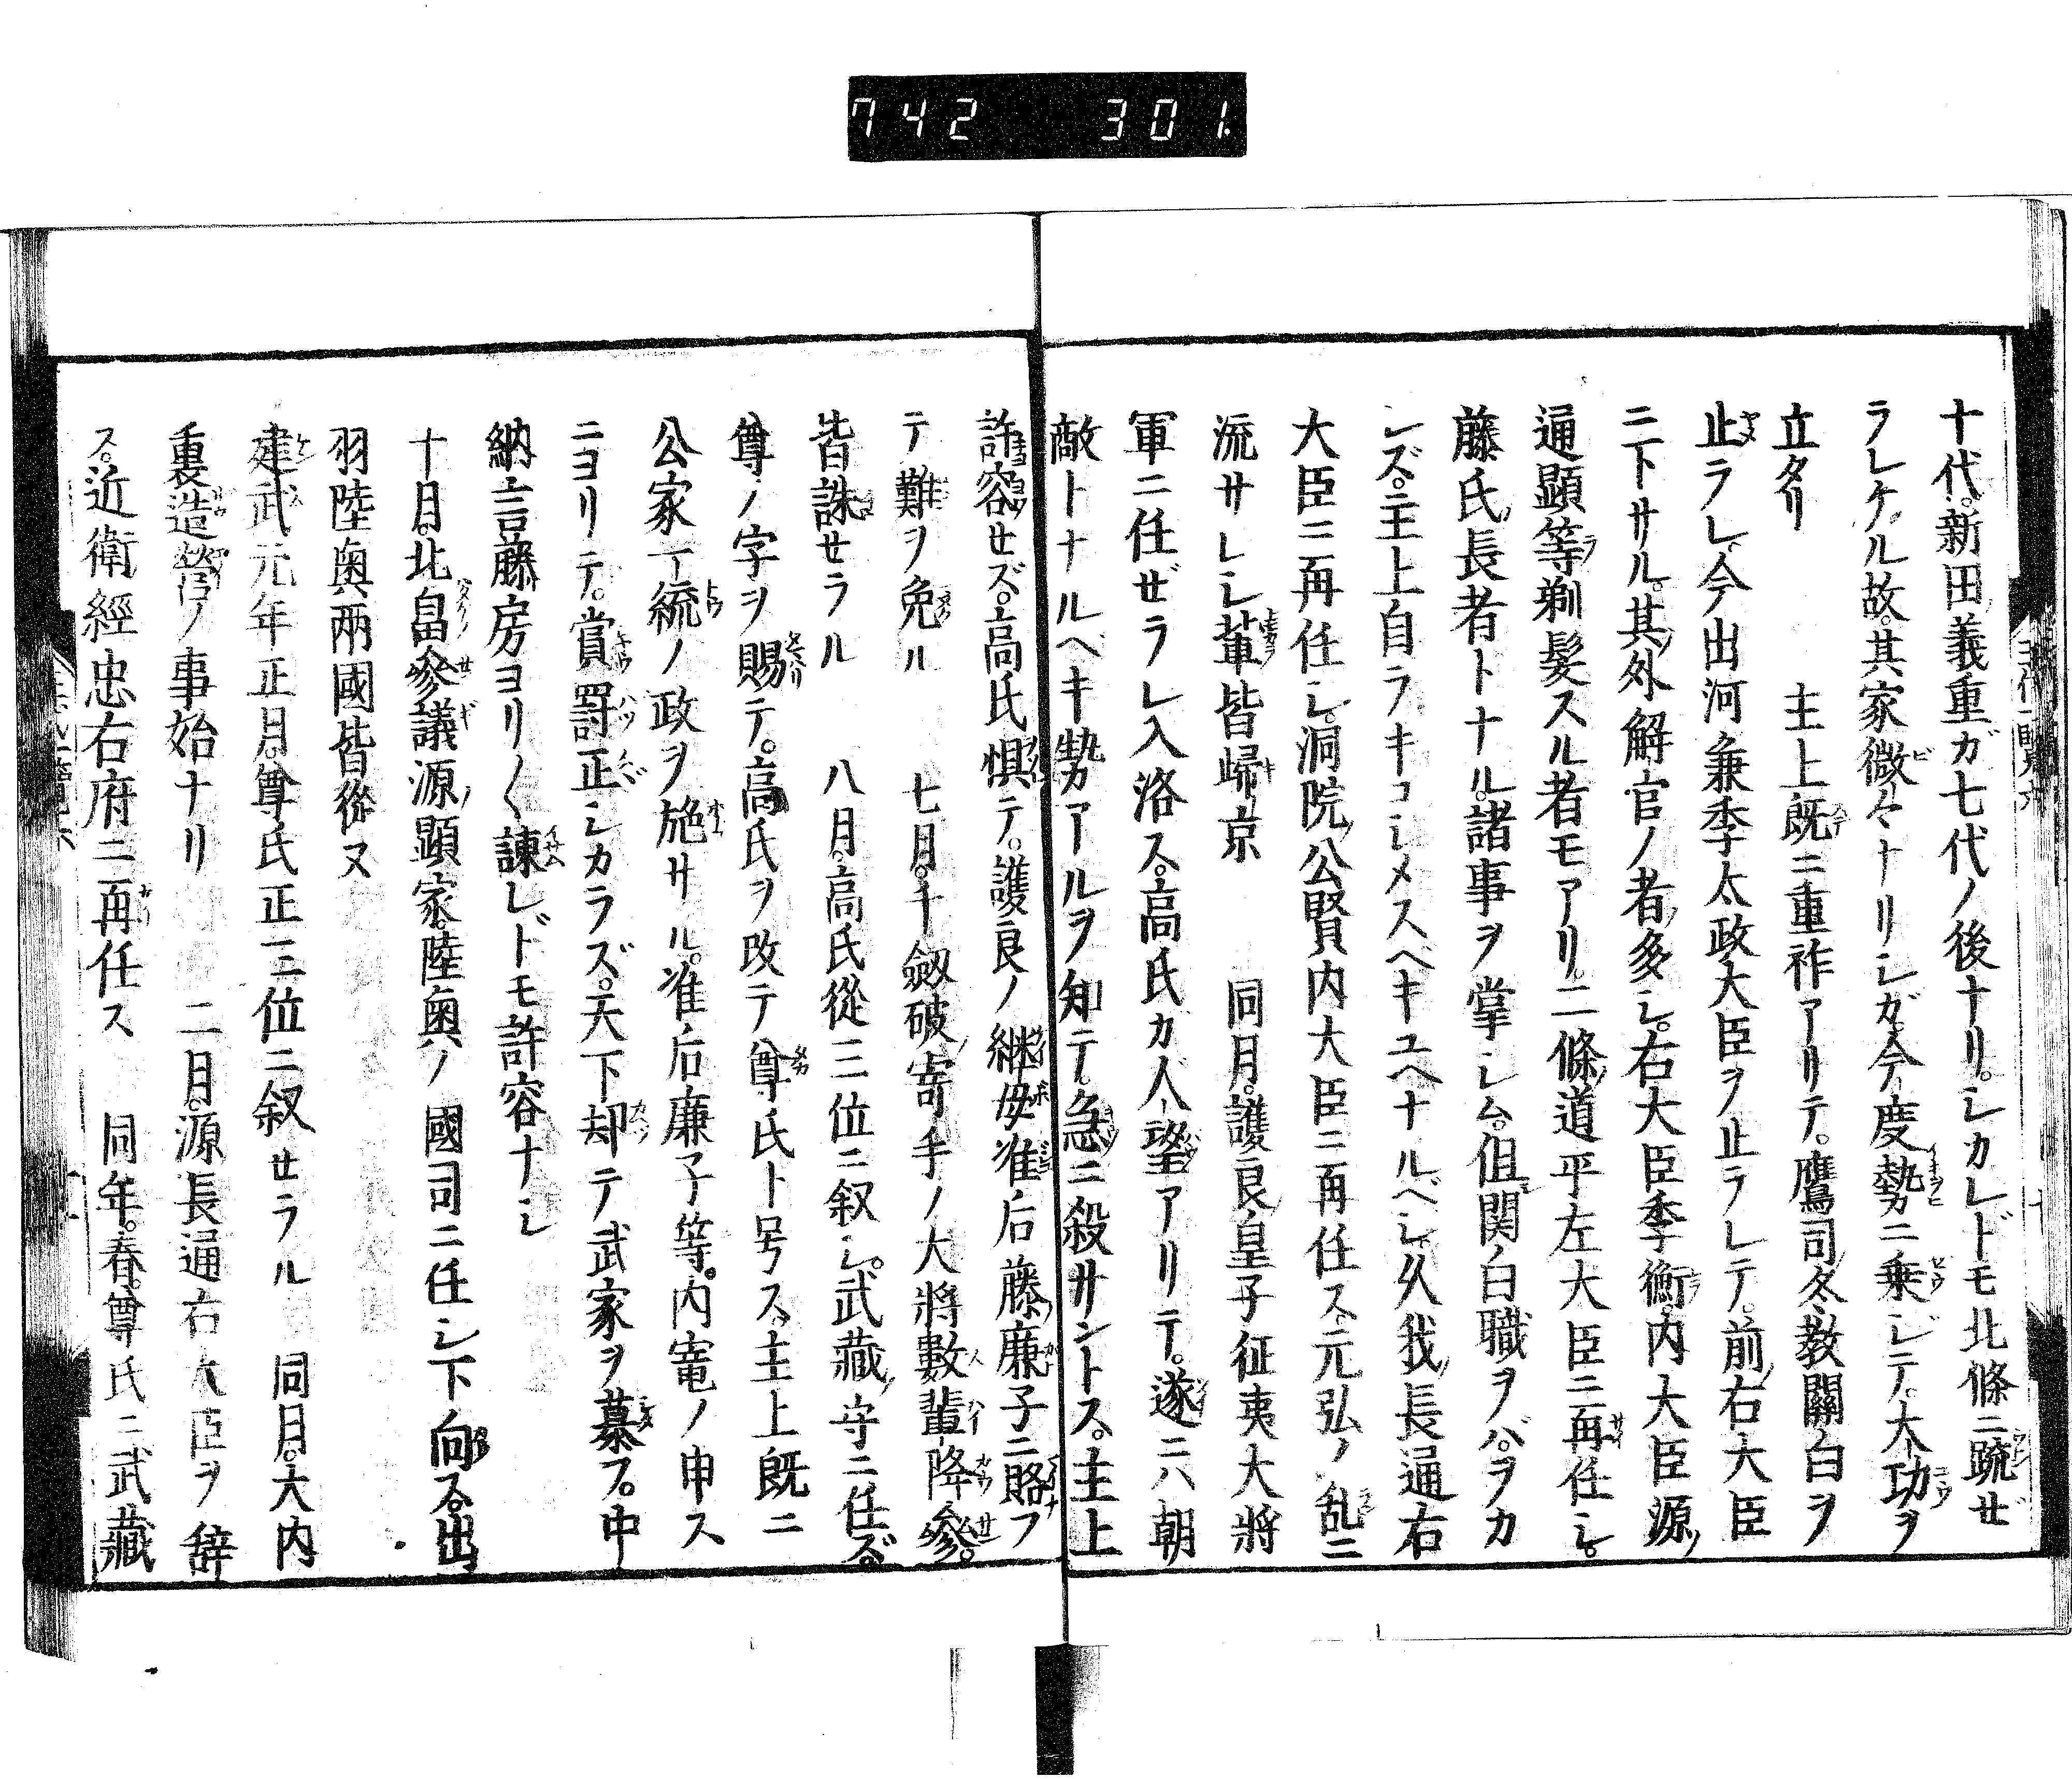 742 301
十代。新田義重ガ七代ノ後ナリ。シカレドモ北條ニ疏ゼ
ラレケル故。其家微々ナリシガ。今度勢ニ乗ジテ。大功ヲ
立タリ　主上既ニ重祚アリテ。鷹司冬教關白ヲ
止ラレ。今出河兼季太政大臣ヲ止ラレテ。前右大臣
ニ下サル。其外解官ノ者多シ。右大臣季衡。内大臣源
通顕等剃髪スル者モアリ。二條道平左大臣ニ再任シ。
藤氏長者トナル。諸事ヲ掌シム。但関白職ヲバ。ヲカ
シズ。主上自ラキコシメスベキユヘナルベシ。久我長通右
大臣ニ再任シ。洞院公賢内大臣ニ再任ス。元弘ノ乱ニ
流サレシ輩皆皈京　同月。護良皇子征夷大將
軍ニ任ゼラレ入洛ス。高氏ガ人望アリテ。遂ニハ朝
敵トナルベキ勢アルヲ知テ。急ニ殺サントス。主上
許容セズ。高氏惧テ。護良ノ継母准后藤廉子ニ賂フ
テ難ヲ免ル　七月。千劔破寄手ノ大將數輩降參。
皆誅セラル　八月。高氏從三位ニ叙シ。武藏守ニ任ズ。
尊ノ字ヲ賜テ。高氏ヲ改テ尊氏ト号ス。主上既ニ
公家一統ノ政ヲ施サル。准后廉子等。内竈ノ申ス
ニヨリテ。賞罸正シカラズ。天下却テ武家ヲ慕フ。中
納言藤房ヨリ〱諫レドモ許容ナシ
十月。北畠參議源顕家。陸奥ノ國司ニ任シ下向ス。出
羽陸奥兩國皆從ヌ
建武元年正月。尊氏正三位ニ叙セラル　同月。大内
裏造營ノ事始ナリ　二月。源長通右大臣ヲ辞
ス。近衛經忠右府ニ再任ス　同年。春。尊氏ニ武藏